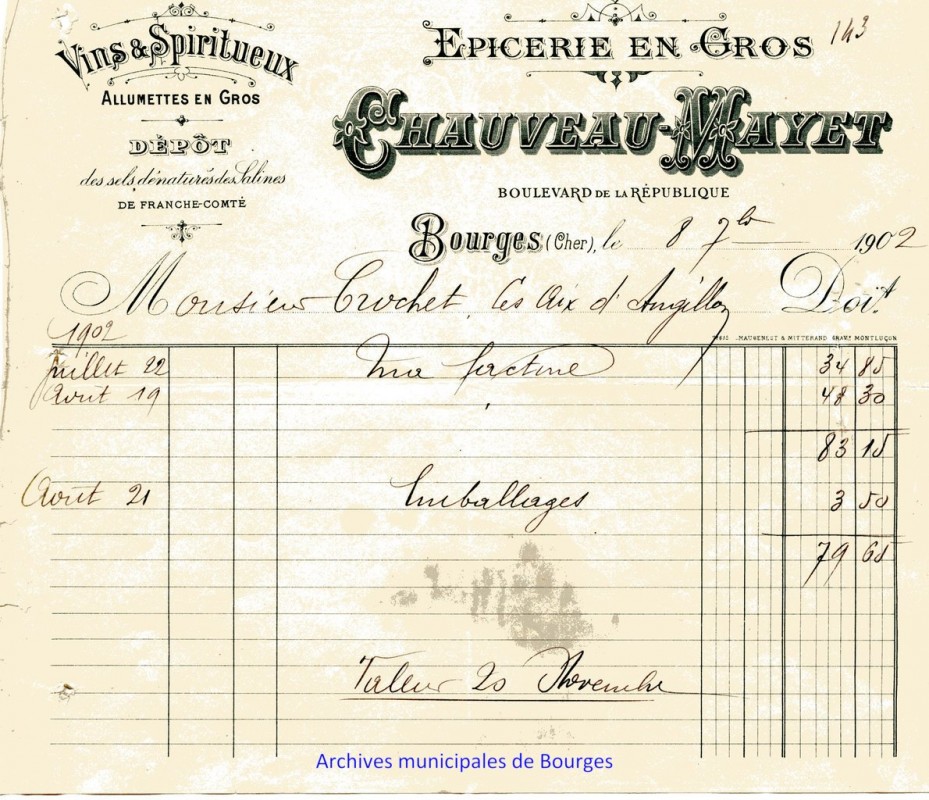 Vins & Spiritueux
ALLUMETTES EN GROS
DÉPÔT
des sels dénaturés des Salines
DE FRANCHE-COMTÉ
EPICERIE EN GROS 143
CHAUVEAU-MAYET
BOULEVARD DE LA RÉPUBLIQUE
Bourges (Cher), le 8 7bre 1902
Monsieur Crochet, Les Aix d'Angillon Doit
MAUGENEST & MITTERAND GRAV.RS MONTLUÇON
1902
Juillet 22 Ma facture 34 85
Août 19 48 30
83 15
Août 21 Emballages 3 50
79 65
Valeur 20 Novembre
Archives municipales de Bourges